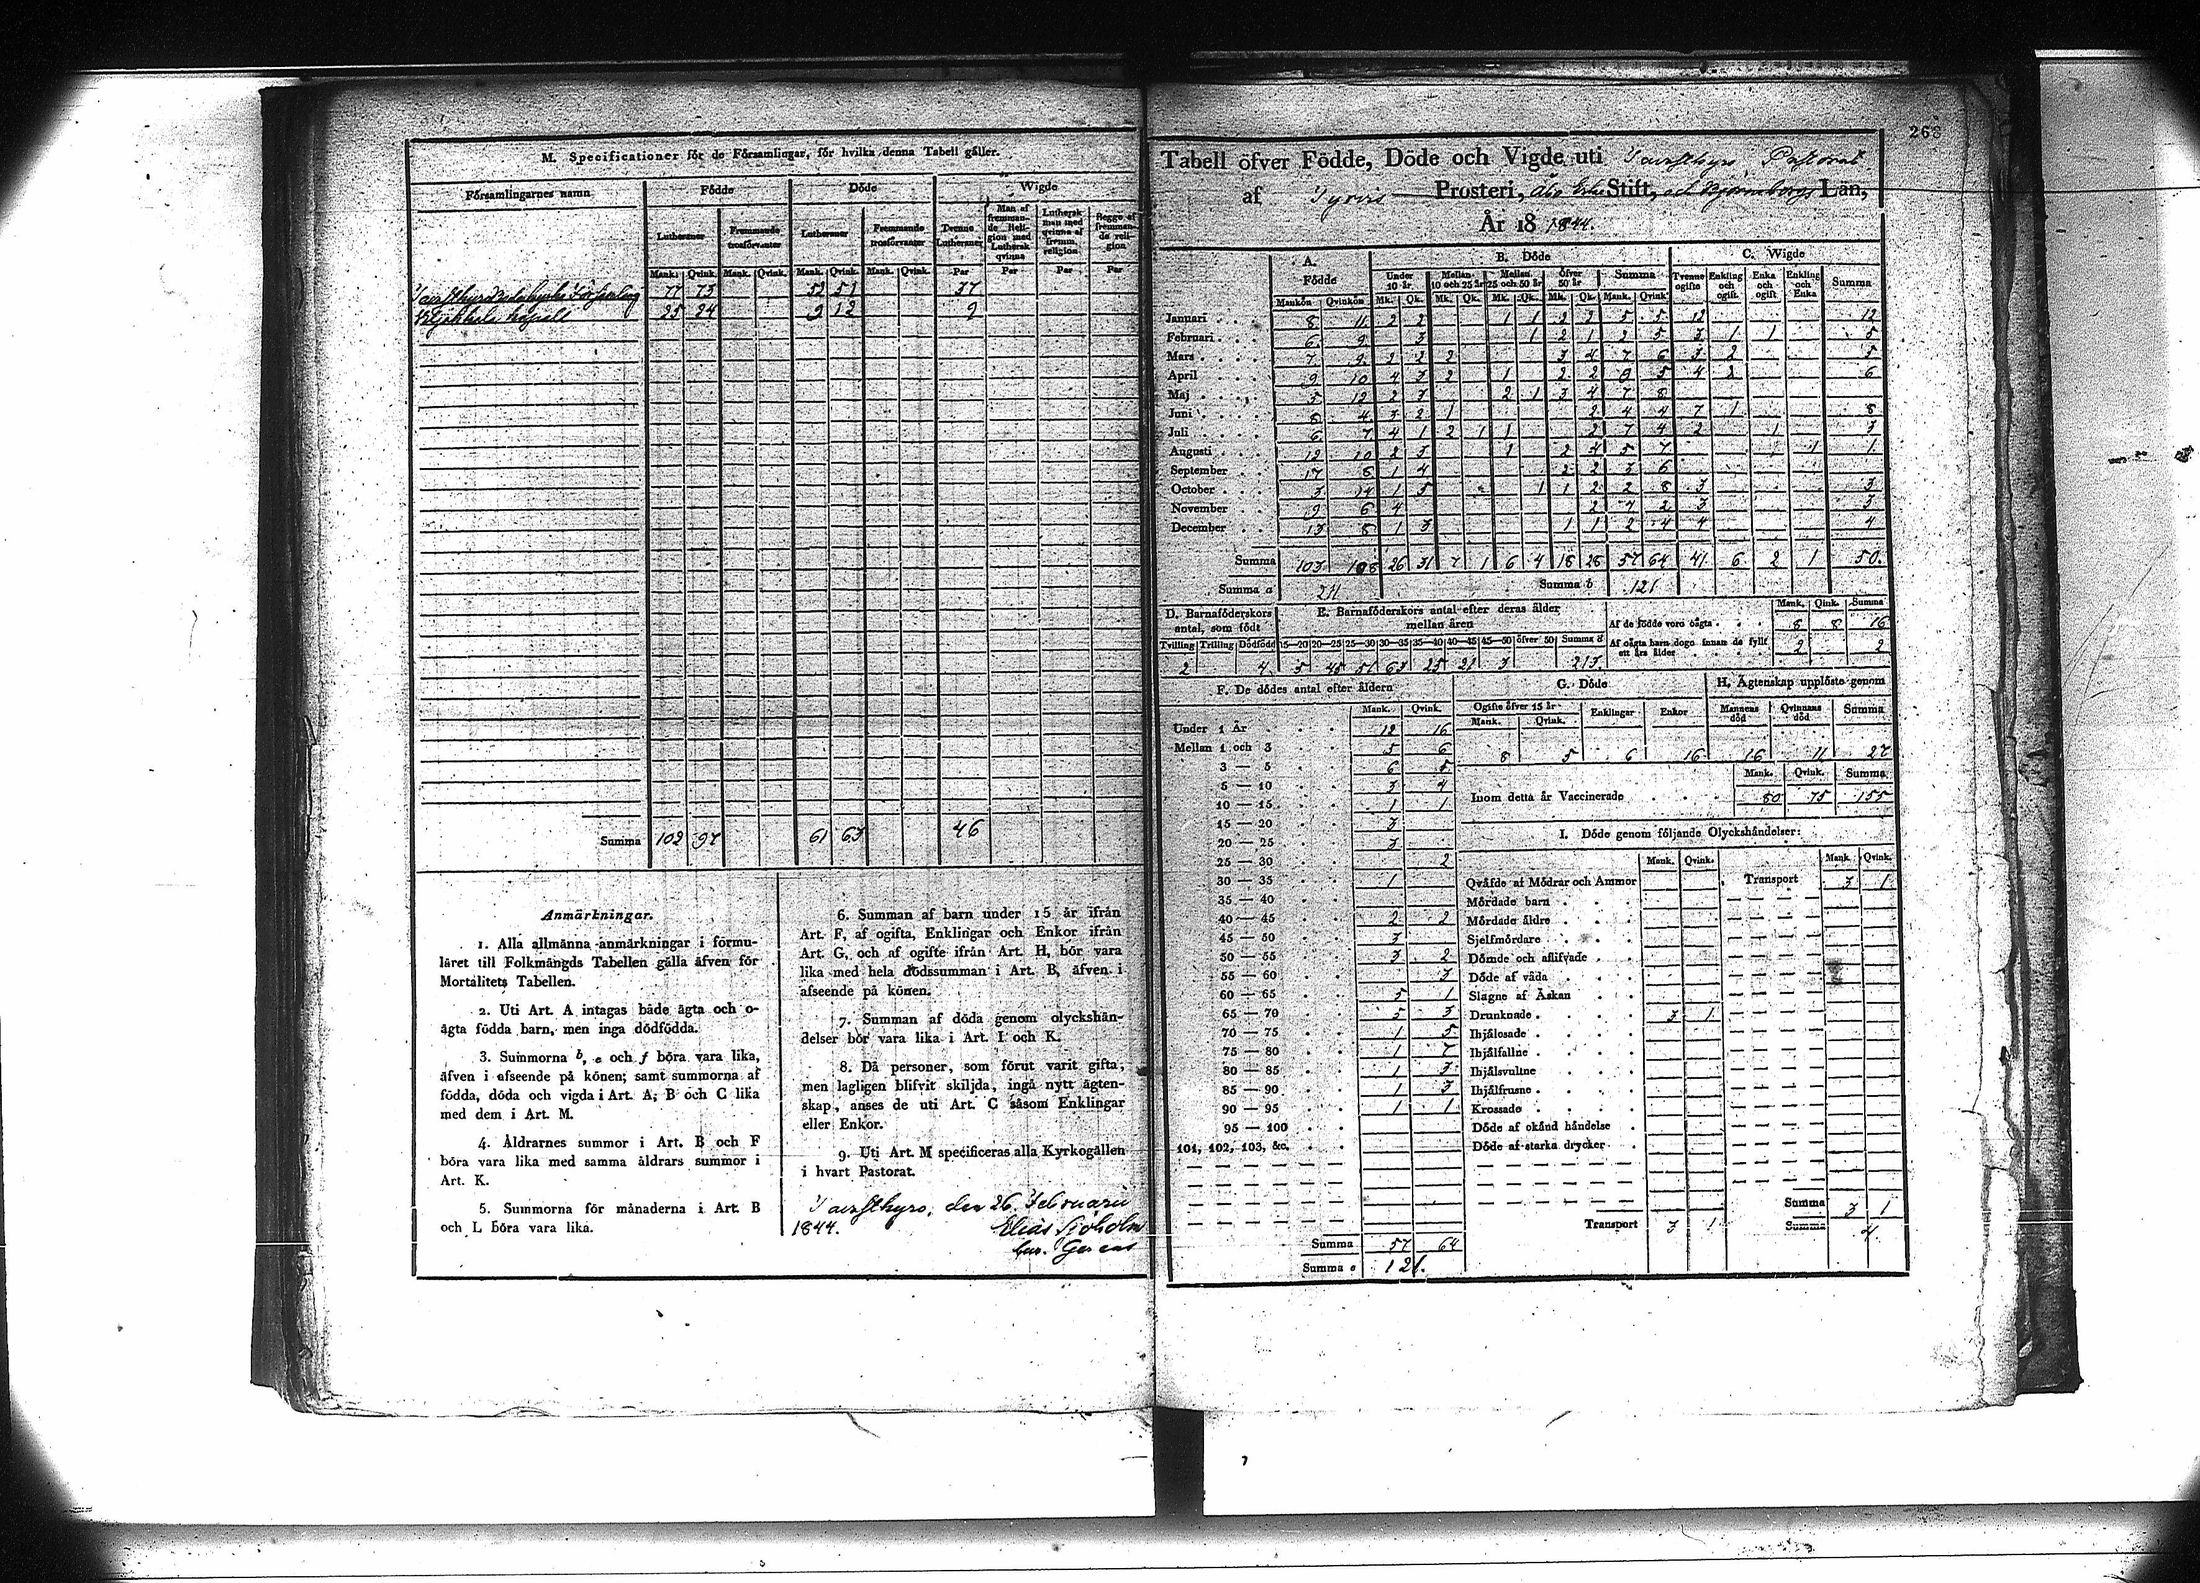 M. Specificationer för de Församlingar, för hvilka denna Tabell gäller.
Församlingarnes namn Födde Döde Wigde
Lutheraner Fremmande trosförvanter Lutheraner Fremmande trosförvanter Tvenne Lutheraner Man af fremmande Religion med Luthersk qvinna Luthersk man med qvinna af fremm. religion Begge af fremmande religion
Mank. Qvink. Mank. Qvink. Mank. Qvink. Mank. Qvink. Par Par Par Par
77 73 52 51 37
kapell 25 24 9 12 9
Summa 102 97 61 63 46
Anmärkningar.
1. Alla allmänna anmärkningar i formu-
läret till Folkmängds Tabellen gälla äfven för
Mortalitets Tabellen.
2. Uti Art. A intagas både ägta och o-
ägta födda barn, men inga dödfödda.
3. Summorna b, e och f böra vara lika,
äfven i afseende på könen; samt summorna af
födda, döda och vigda i Art. A, B och C lika
med dem i Art. M.
4. Åldrarnes summor i Art. B och F
böra vara lika med samma åldrars summor i
Art. K.
5. Summorna för månaderna i Art. B
och L böra vara lika.
6. Summan af barn under 15 år ifrån
Art. F, af ogifta, Enklingar och Enkor ifrån
Art. G, och af ogifte ifrån Art. H, bör vara
lika med hela dödssumman i Art. B, äfven i
afseende på könen.
7. Summan af döda genom olyckshän-
delser bör vara lika i Art. I och K.
8. Då personer, som förut varit gifta,
men lagligen blifvit skiljda, ingå nytt ägten-
skap, anses de uti Art. C såsom Enklingar
eller Enkor.
9. Uti Art. M specificeras alla Kyrkogällen
i hvart Pastorat.
Tavsthyro, den 26 Februarii
1844. Elias
268
Tabell öfver Födde, Döde och Vigde uti Tavsthyro Pastorat
af Tyrvis Prosteri, Åbo Erke Stift, och Björneborgs Län,
År 18 1844.
A. Födde B. Döde C. Wigde
Under 10 år Mellan 10 och 25 år Mellan 25 och 50 år Öfver 50 år Summa Tvenne ogifte Enkling och ogift Enka och ogift Enkling och Enka Summa
Mankön Qvinkön Mk. Qk. Mk. Qk. Mk. Qk. Mk. Qk. Mank. Qvink.
Januari 8 11 2 2 1 1 2 2 5 5 12 12
Februari 6 9 3 1 2 1 2 5 3 1 1 5
Mars 7 9 2 2 2 3 4 7 6 3 2 5
April 9 10 4 3 2 1 2 2 9 5 4 2 6
Maj 5 12 2 3 2 1 3 4 7 8
Juni 8 4 3 2 1 2 4 4 7 1 8
Juli 6 7 4 1 2 1 1 2 7 4 2 1 3
Augusti 12 10 2 3 1 2 4 5 7 1 1
September 17 8 1 4 2 2 3 6
October 3 14 1 5 1 1 2 2 8 3 3
November 9 6 4 2 4 2 3 3
December 13 8 1 3 1 1 2 4 4 4
Summa 103 108 26 31 7 1 6 4 18 28 57 64 41 6 2 1 50.
Summa a 211 Summa b 121
D. Barnaföderskors antal, som födt E. Barnaföderskors antal efter deras ålder mellan åren
Tvilling Trilling Dödfödd 15—20 20—25 25—30 30—35 35—40 40—45 45—50 öfver 50 Summa d
2 4 5 45 51 63 25 21 3 213.
Mank. Qink. Summa
Af de födde voro oägta 8 8 16
Af oägta barn dogo innan de fyllt ett års ålder 2 2
F. De dödes antal efter åldern
Mank. Qvink.
Under 1 År 12 16
Mellan 1 och 3 5 6
3 — 5 6 5
5 — 10 3 4
10 — 15 1 1
15 — 20 3
20 — 25 3
25 — 30 2
30 — 35 1
35 — 40
40 — 45 2 2
45 — 50 3
50 — 55 3 2
55 — 60 3
60 — 65 5 1
65 — 70 5 3
70 — 75 1 5
75 — 80 1 7
80 — 85 1 3
85 — 90 1 3
90 — 95 1 1
95 — 100
101, 102, 103, &c.
Summa 57 64
Summa e 121.
G. Döde H. Ägtenskap upplöste genom
Ogifte öfver 15 år Enklingar Enkor Mannens död Qvinnans död Summa
Mank. Qvink.
8 5 6 16 16 11 27
Mank. Qvink. Summa
Inom detta år Vaccinerade 80 75 155
I. Döde genom följande Olyckshändelser:
Mank. Qvink. Mank. Qvink.
Qväfde af Mödrar och Ammor Transport 3 1
Mördade barn
Mördade äldre
Sjelfmördare
Dömde och aflifvade
Döde af våda
Slagne af Åskan
Drunknade 3 1
Ihjälosade
Ihjälfallne
Ihjälsvultne
Ihjälfrusne
Krossade
Döde af okänd händelse
Döde af starka drycker
Summa 3 1
Transport 3 1 Summa 4.